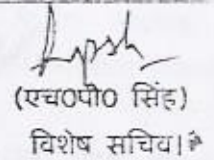 (एच0पी0 सिंह)
विशेष सचिव।